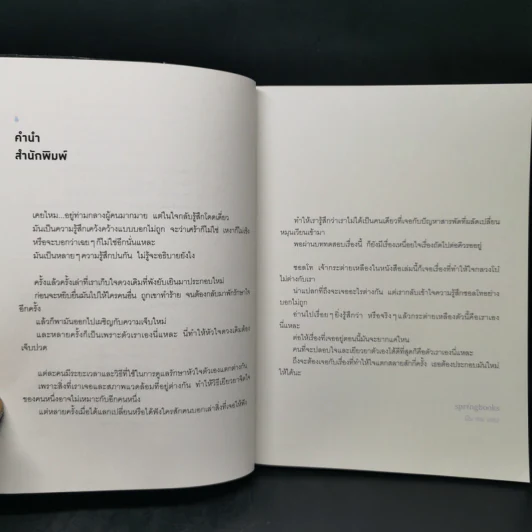 คำนำ
สำนักพิมพ์
เคยไหม...อยู่ท่ามกลางผู้คนมากมาย แต่ในใจกลับรู้สึกโดดเดี่ยว
มันเป็นความรู้สึกเคว้งคว้างแบบบอกไม่ถูก จะว่าเศร้าก็ไม่ใช่ เหงาก็ไม่เชิง
หรือจะบอกว่าเฉยๆ ก็ไม่ใช่อีกนั่นแหละ
มันเป็นหลายๆ ความรู้สึกปนกัน ไม่รู้จะอธิบายยังไง
ครั้งแล้วครั้งเล่าที่เราเก็บใจดวงเดิมที่พังยับเยินมาประกอบใหม่
ก่อนจะหยิบยื่นมันไปให้ใครคนอื่น ถูกเขาทำร้าย จนต้องกลับมาพักรักษาใจ
อีกครั้ง
แล้วก็พามันออกไปเผชิญกับความเจ็บใหม่
และหลายครั้งก็เป็นเพราะตัวเราเองนี่แหละ นี่ทำให้หัวใจดวงเดิมต้อง
เจ็บปวด
แต่ละคนมีระยะเวลาและวิธีที่ใช้ในการดูแลรักษาหัวใจตัวเองแตกต่างกัน
เพราะสิ่งที่เราเจอและสภาพแวดล้อมที่อยู่ต่างกัน ทำให้วิธีเยียวยาจิตใจ
ของคนหนึ่งอาจไม่เหมาะกับอีกคนหนึ่ง
แต่หลายครั้งเมื่อได้แลกเปลี่ยนหรือได้ฟังใครสักคนบอกเล่าสิ่งที่เจอให้ฟัง
ทำให้เรารู้สึกว่าเราไม่ได้เป็นคนเดียวที่เจอกับปัญหาสารพัดที่ผลัดเปลี่ยน
หมุนเวียนเข้ามา
พอผ่านบททดสอบเรื่องนี้ ก็ยังมีเรื่องเหนื่อยใจเรื่องถัดไปต่อคิวรออยู่
ซอลโท เจ้ากระต่ายเหลืองในหนังสือเล่มนี้ก็เจอเรื่องที่ทำให้ใจกลวงโบ๋
ไม่ต่างกับเรา
น่าแปลกที่ถึงจะเจออะไรต่างกัน แต่เรากลับเข้าใจความรู้สึกซอลโทอย่าง
บอกไม่ถูก
อ่านไปเรื่อยๆ ยิ่งรู้สึกว่า หรือจริงๆ แล้วกระต่ายเหลืองตัวนี้คือเราเอง
นี่แหละ
ต่อให้เรื่องที่เจออยู่ตอนนี้มันจะยากแค่ไหน
คนที่จะปลอบใจและเยียวยาตัวเองได้ดีที่สุดก็คือตัวเราเองนี่แหละ
ถึงจะต้องเจอกับเรื่องที่ทำให้ใจแตกสลายสักกี่ครั้ง เธอต้องประกอบมันใหม่
ให้ได้นะ
springbooks